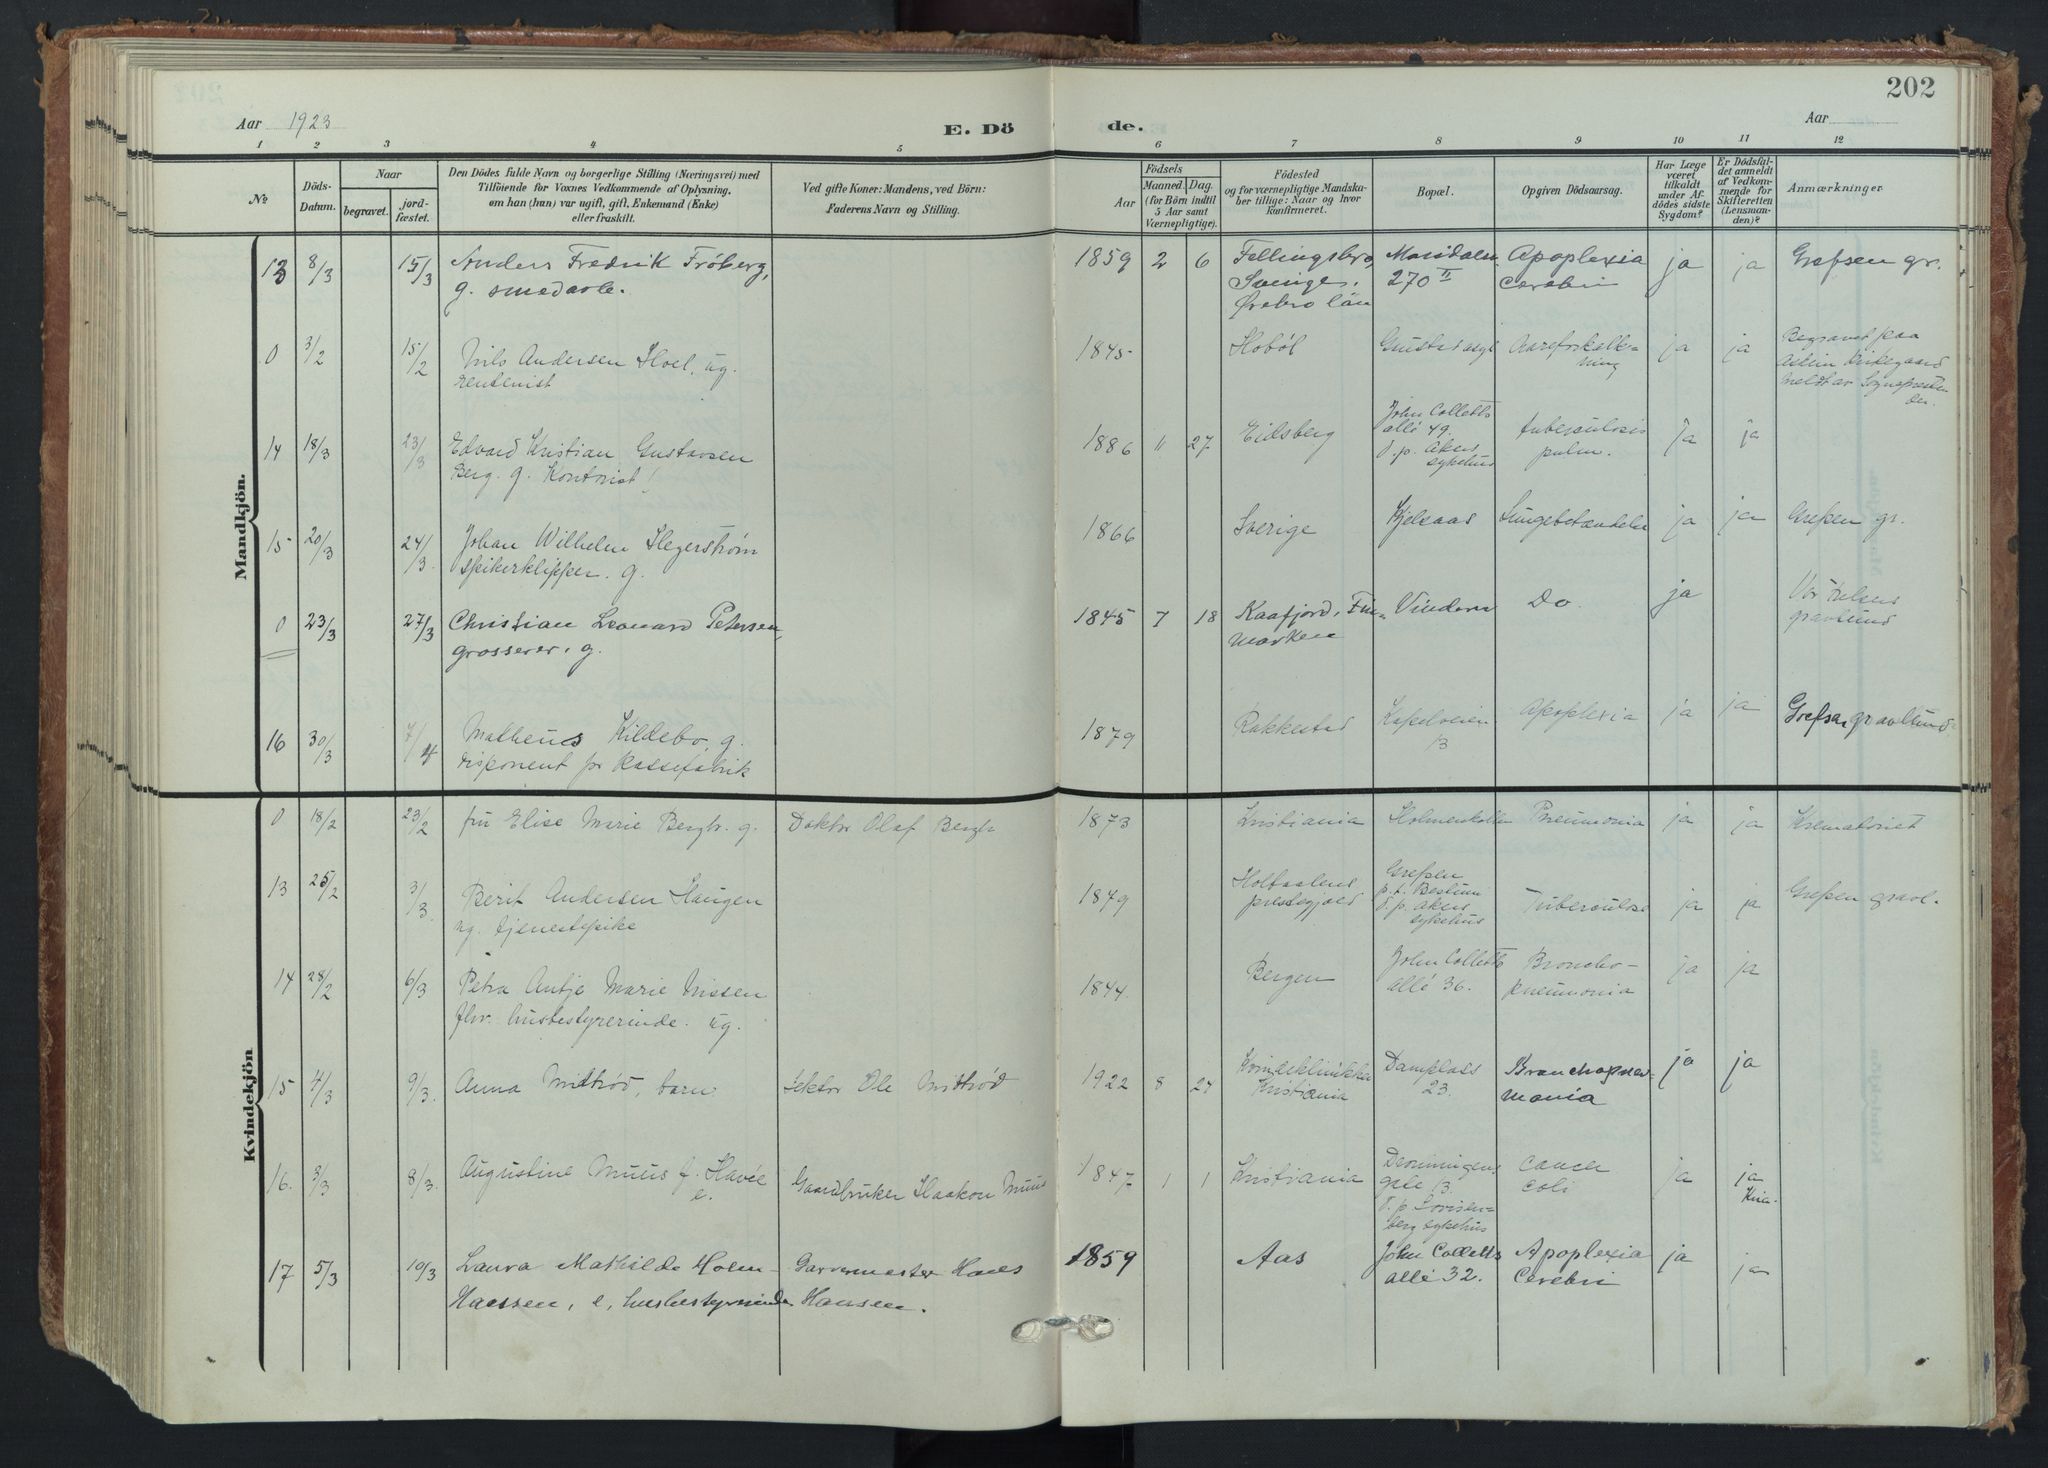 202
Aar 1923
E. Döde.
Aar
1 2 3 4 5 6 7 8 9 10 11 12
No
Döds-Datum.
Naar
begravet.
jord-fæstet.
Den Dödes fulde Navn og borgerlige Stilling (Næringsvei) med
Tilföiende for Voxnes Vedkommende af Oplysning,
om han (hun) var ugift, gift, Enkemand (Enke)
eller fraskilt.
Ved gifte Koner: Mandens, ved Börn:
Faderens Navn og Stilling.
Födsels
Aar
Maaned. Dag.
(for Börn indtil
5 Aar samt
Værnepligtige).
Födested
og for værnepligtige Mandska-
ber tillige: Naar og hvor
konfirmeret.
Bopæl.
Opgiven Dödsaarsag.
Har Læge
været
tilkaldt
under Af-
dödes sidste
Sygdom?
Er Dödsfal-
det anmeldt
af Vedkom-
mende for
Skifteretten
(Lensman-
den)?
Anmærkninger
Mandkjön.
13 8/3 15/3 Anders Fredrik Fröberg, 1859 2 6 Fellingsbro, Maridalsv. Apoplexia ja ja Grefsen gr.
g. smedarb. Sverige, 270 II cerebri
Örebro län
0 3/2 15/2 Nils Andersen Hoel, ug. 1845 Hobøl Gaustad asyl Aareforkalk- ja ja Begravet paa
rentenist ning kirkegaard
meldt av Sognepresten
der.
14 18/3 23/3 Edvard Kristian Gustavsen 1886 11 27 Eidsberg John Colletts tuberculosis ja ja
Berg. g. Kontorist allé 49. pulm.
d. p. Akers
sykehus
15 20/3 24/3 Johan Wilhelm Hegerstrøm 1866 Sverige Kjelsaas Lungebetændelse ja ja Grefsen gr.
spikerklipper. g.
0 23/3 27/3 Christian Leonard Petersen, 1845 7 18 Kaafjord, Fin- Vinderen Do ja Vor Frelsers
grosserer, g. marken gravlund
16 30/3 7/4 Matheus Kildebo, g. 1879 Rakkestad Kapelveien Apoplexia ja ja Grefsen gravlund.
disponent for kassefabrik 13
Kvindekjön
0 18/2 23/2 fru Elise Marie Bergh. g. Doktor Olaf Bergh 1873 Kristiania Holmenkollen Pneumonia ja ja Krematoriet
13 25/2 3/3 Berit Andersen Haugen 1849 Holtaalens Grefsen Tuberculose ja ja Grefsen gravl.
ug. tjenestepike prestegjæld p. t. Bestum
d. p. Akers
sykehus
14 28/2 6/3 Petra Antje Marie Nissen 1844. Bergen John Colletts Broncho- ja ja
fhv. husbestyrerinde. ug. allé 36. pneumonia
15 4/3 9/3. Anna Mitrød, barn Lektor Ole Mitrød 1922 8 24 Kvindeklinikken Damplass Bronchopneu- ja ja
Kristiania 23. monia
16. 3/3 8/3. Augustine Muus f. Gaardbruker Haakon Muus 1847 1 1 Kristiania Dronningens cancer ja ja
e. gate 13. coli Kria.
d. p. Lovisen-
berg sykehus
17 5/3 10/3 Laura Mathilde Holm- Garvermester Hans 1859 Aas John Colletts Apoplexia ja ja
Hanssen, e, husbestyrerinde Hansen. allé 32. Cerebri